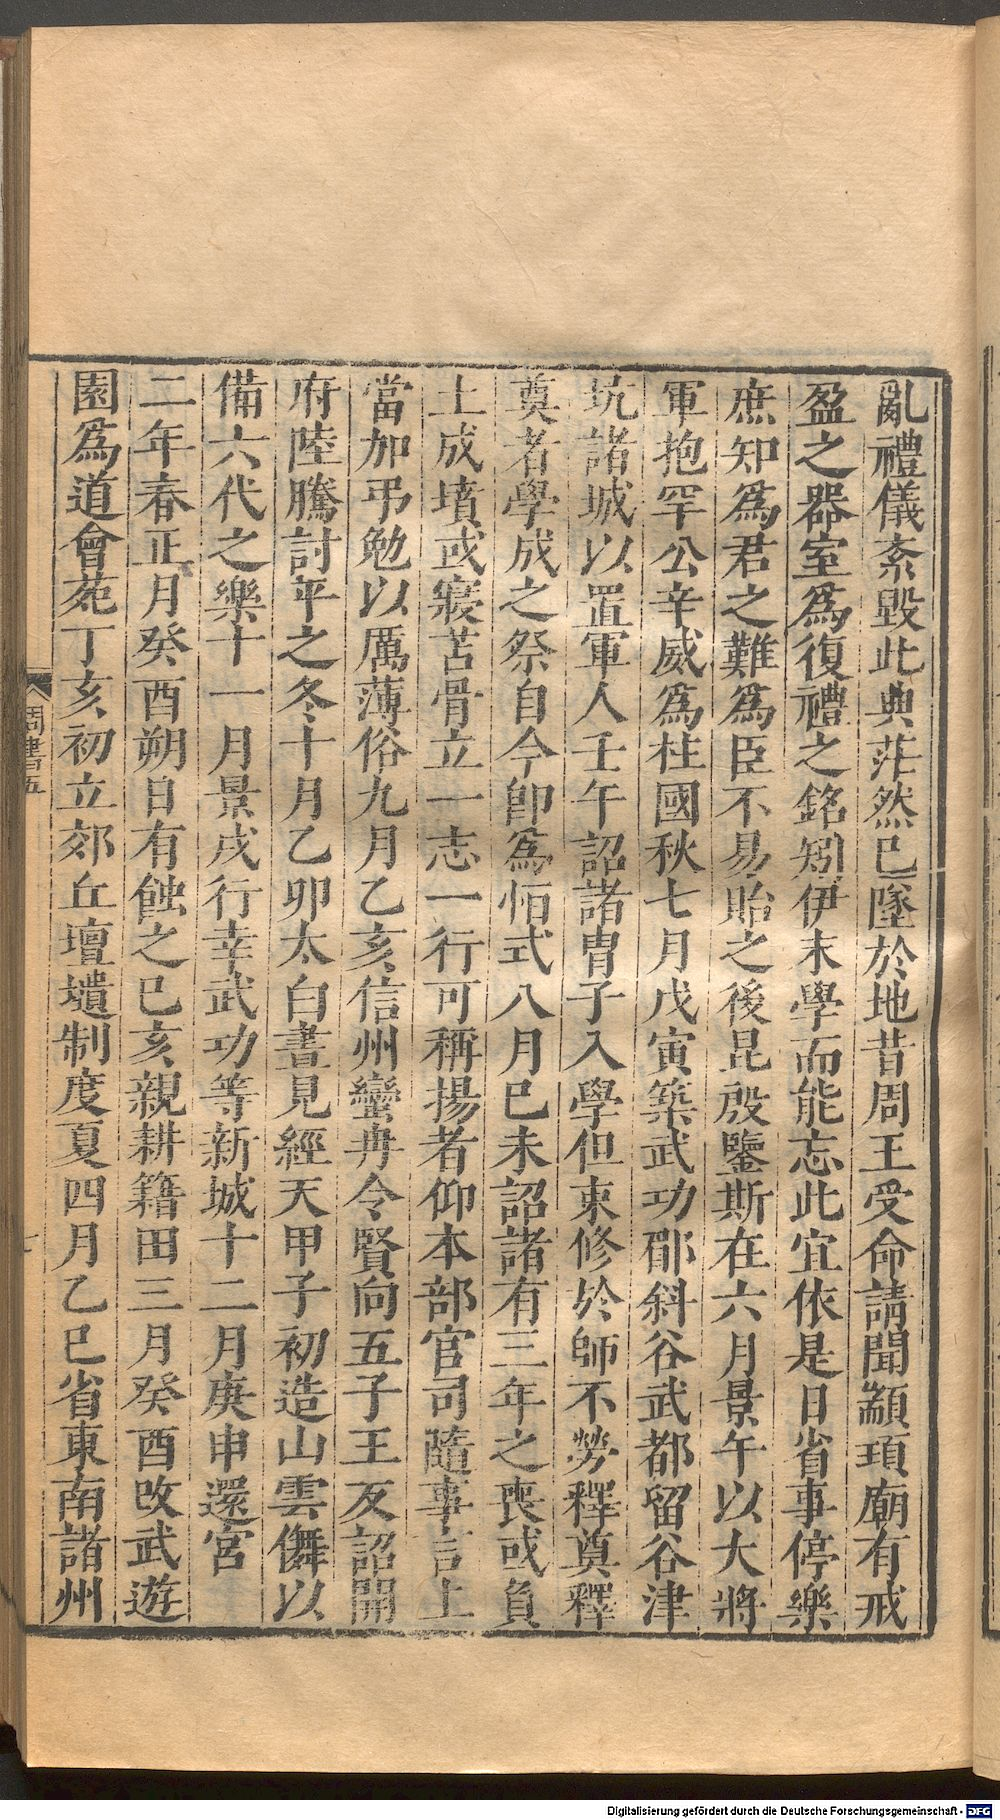 亂禮儀紊毀此典茫然已墜於地昔周王受命請聞顓頊廟有戒
盈之器室爲復禮之銘矧伊末學而能忘此宜依是日省事停樂
庶知爲君之難爲臣不易貽之後昆殷鑒斯在六月景午以大將
軍抱罕公辛威爲柱國秋七月戊寅築武功郿斜谷武都留谷津
坑諸城以置軍人壬午詔諸胄子入學但束修於師不勞釋奠釋
奠者學成之祭自今卽爲恒式八月巳未詔諸有三年之喪或負
土成墳或寢苫骨立一志一行可稱揚者仰本部官司隨事言上
當加弔勉以厲薄俗九月乙亥信州蠻冉令賢向五子王反詔開
府陸騰討平之冬十月乙卯太白晝見經天甲子初造山雲儛以
備六代之樂十一月景戌行幸武功等新城十二月庚申還宮
二年春正月癸酉朔日有蝕之巳亥親耕籍田三月癸酉改武遊
園爲道會苑丁亥初立郊丘壇壝制度夏四月乙巳省東南諸州
周書五
七
Digitalisierung gefördert durch die Deutsche Forschungsgemeinschaft - DFG